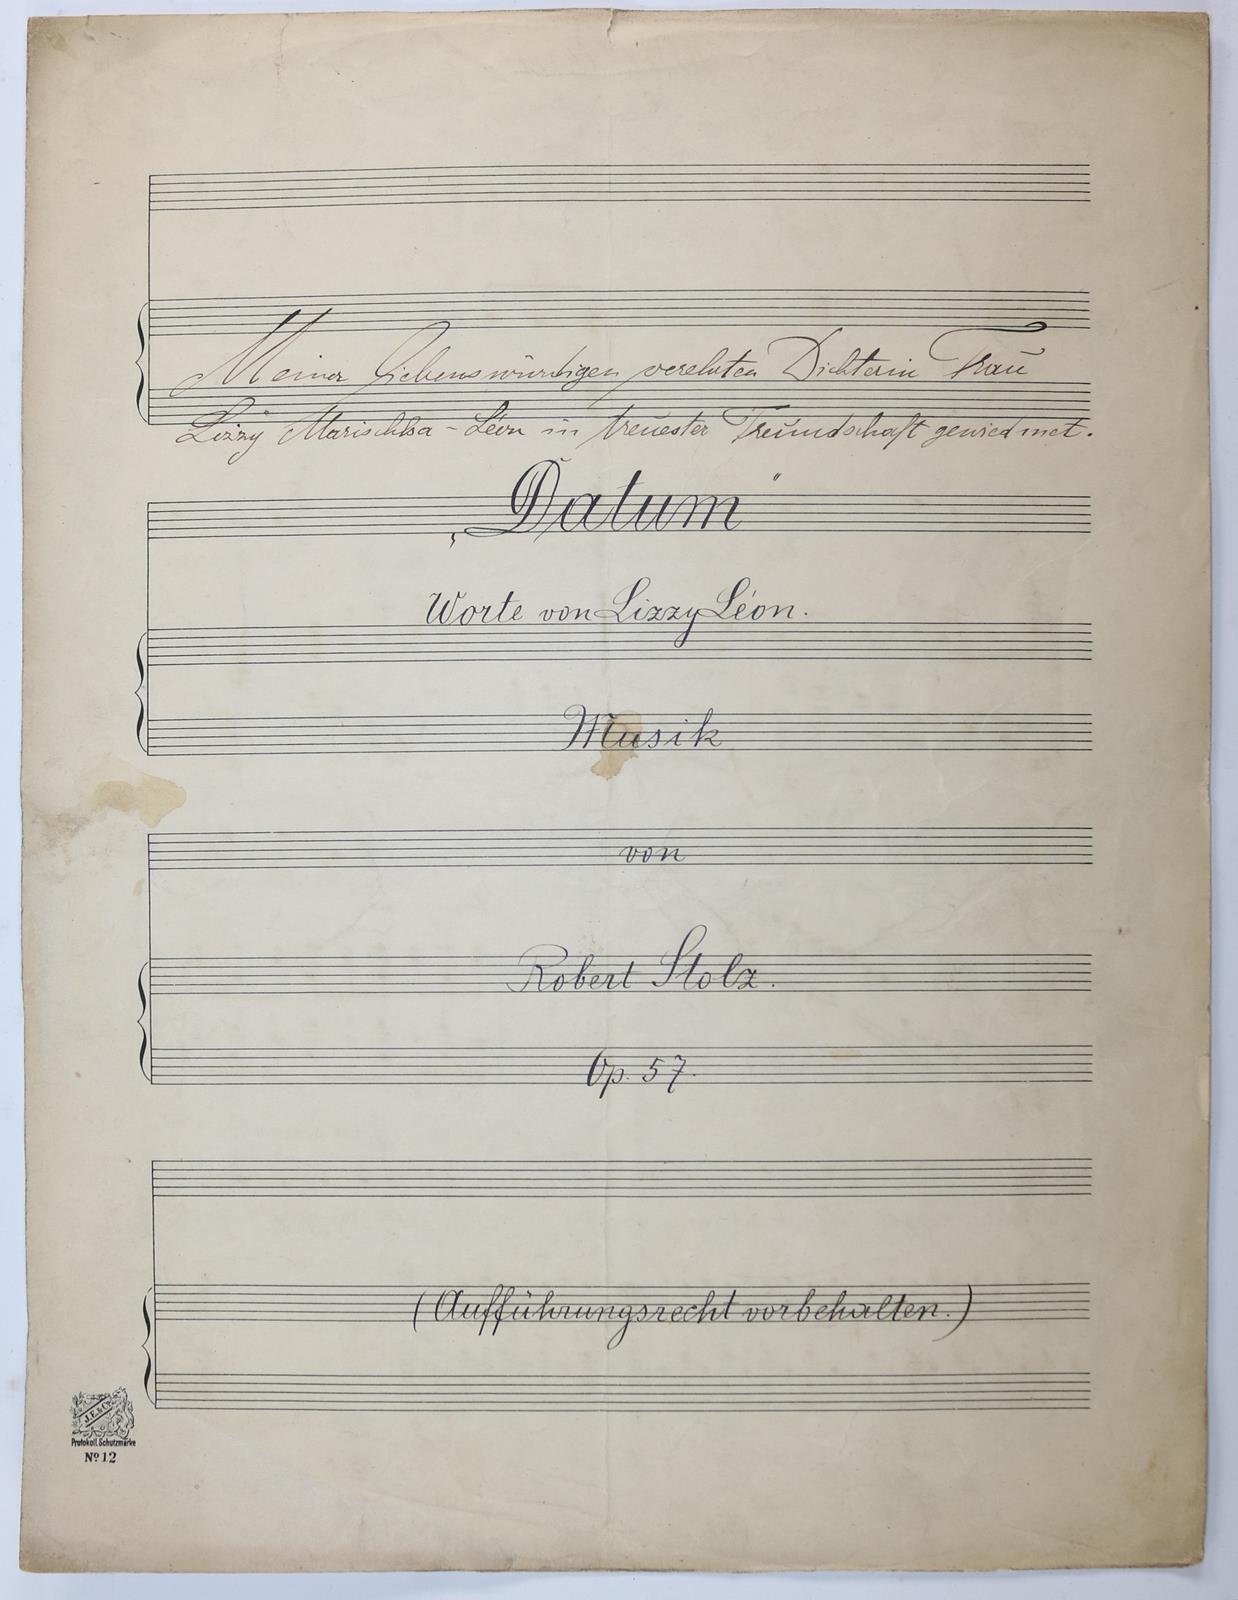 Meiner liebenswürdigen verehrten Dichterin Frau
Lizzy Marischka-Léon in treuester Freundschaft gewidmet.
„Datum"
Worte von Lizzy Léon.
Musik
von
Robert Stolz.
Op. 57.
(Aufführungsrecht vorbehalten.)
J.E. & Co.
Protokoll. Schutzmarke
No 12